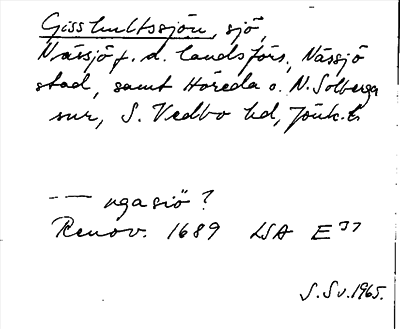 Gisshultssjön, sjö,
Nässjö f. d. landsförs., Nässjö
stad, samt Höreda o. N. Solberga
snr, S. Vedbo hd, Jönk. l.
--- ngasiö?
Renov. 1689 LSA E
S. Sv. 1965.